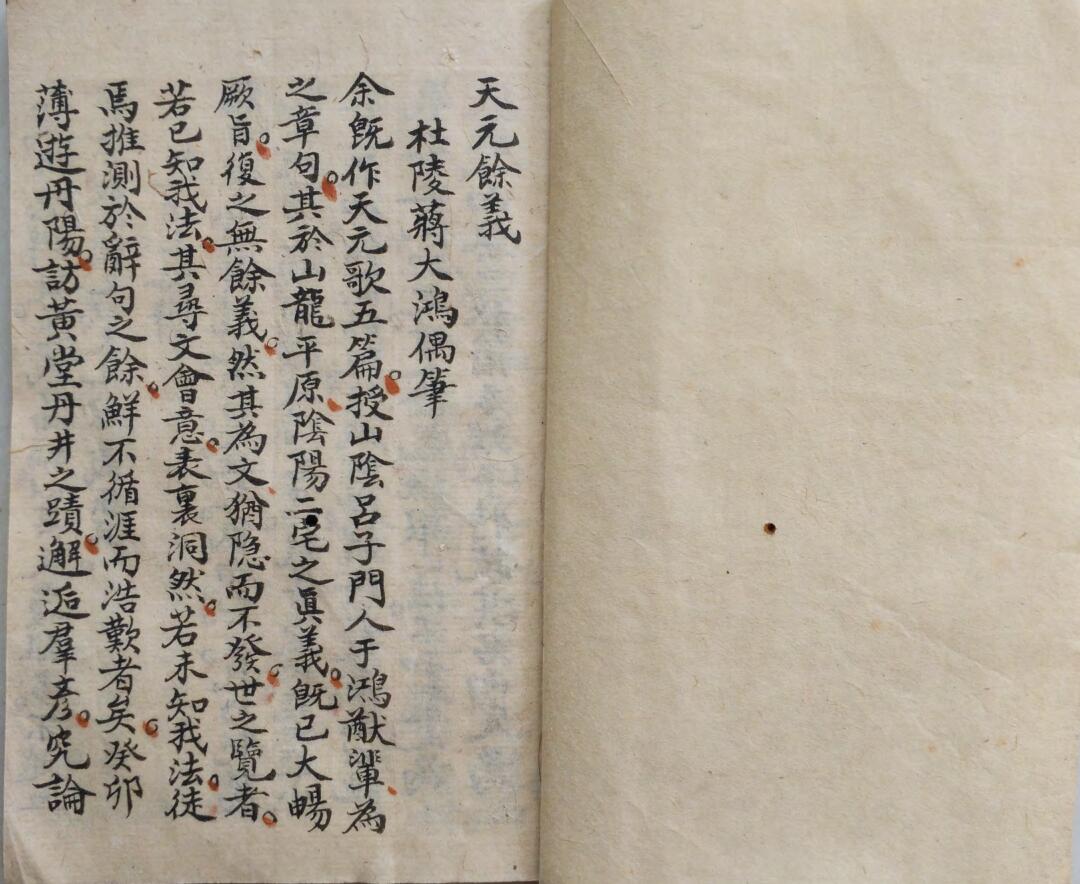 天元餘義
杜陵蔣大鴻偶筆
余旣作天元歌五篇。授山陰呂子門人于鴻猷輩為
之章句。其於山龍平原陰陽二宅之眞義。旣已大暢
厥旨。復之無餘義。然其為文猶隐而不發。世之覽者。
若已知我法。其尋文會意。表裏洞然。若未知我法。徒
焉推測於辭句之餘。鮮不循涯而浩歎者矣。癸卯
薄遊丹陽。訪黃堂丹井之蹟。邂逅羣彥。究論